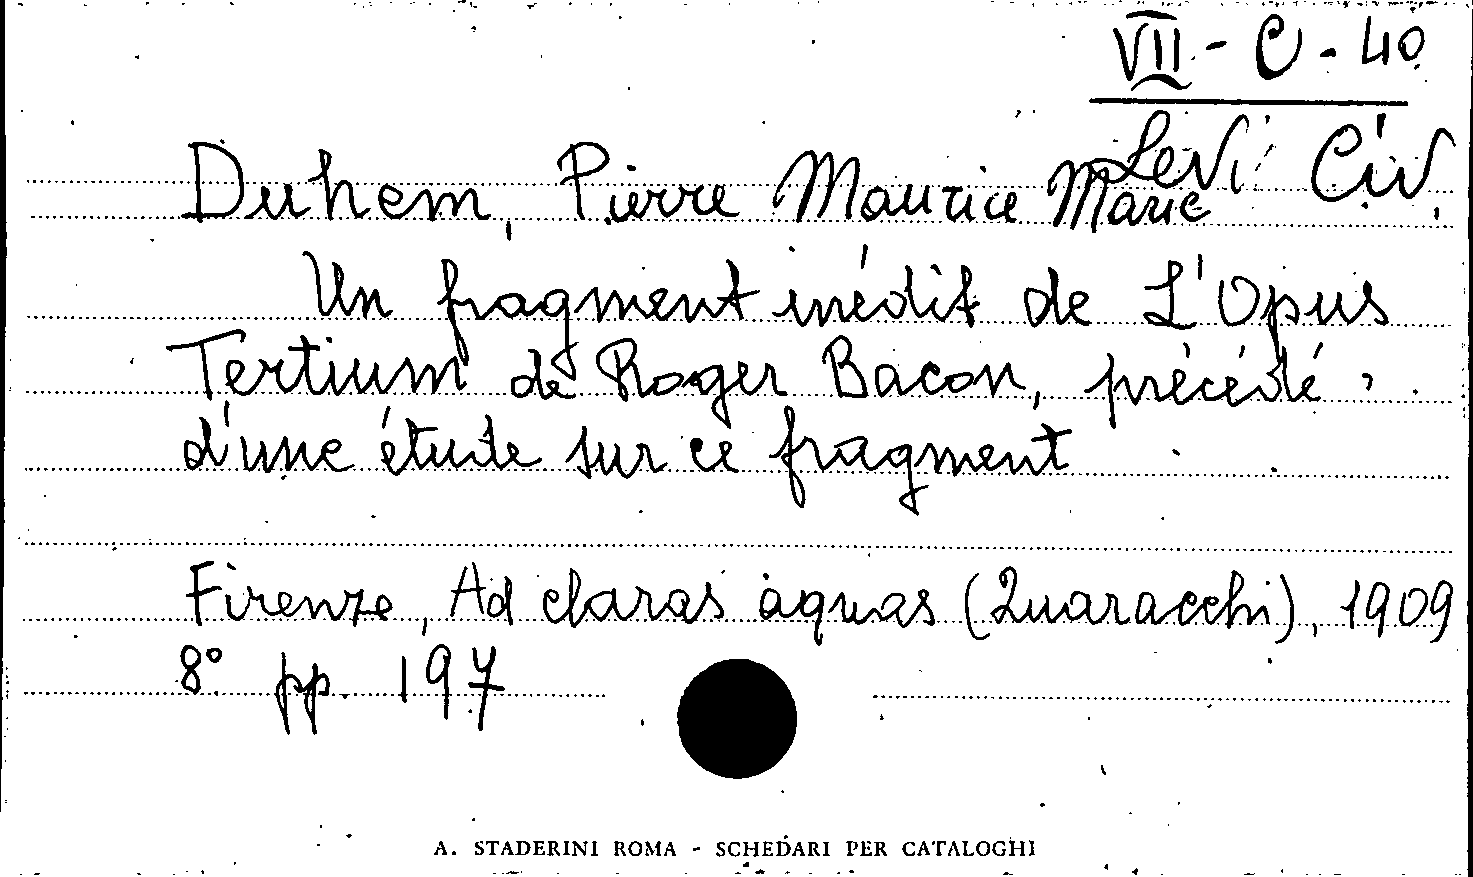 VII - C - 40
Levi Civ.
Duhem, Pierre Maurice Marie
Un fragment inédit de L'Opus
Tertium de Roger Bacon, précédé
d'une étude sur ce fragment
Firenze, Ad claras aquas (Quaracchi), 1909
8° pp. 197
A. STADERINI ROMA - SCHEDARI PER CATALOGHI